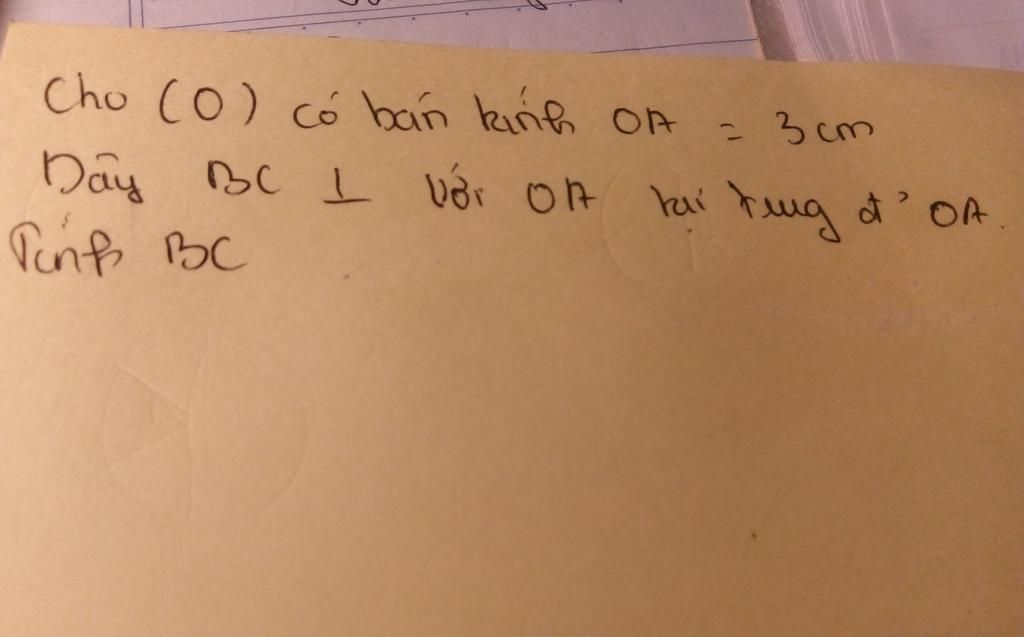 Cho (O) có bán kính OA = 3cm
Dây BC ⊥ với OA tại trung đ' OA.
Tính BC